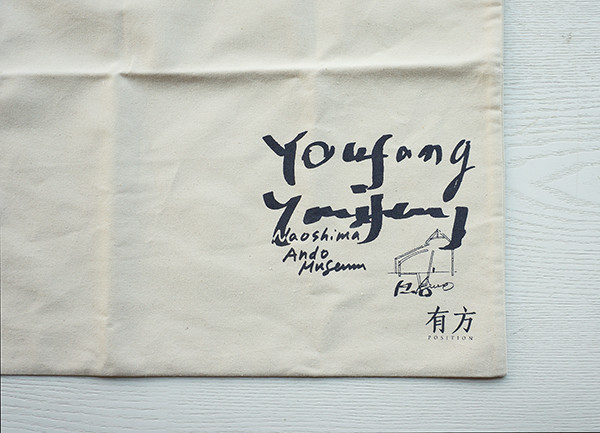 Youfang
Youfang
Naoshima
Ando
Museum
有方
POSITION